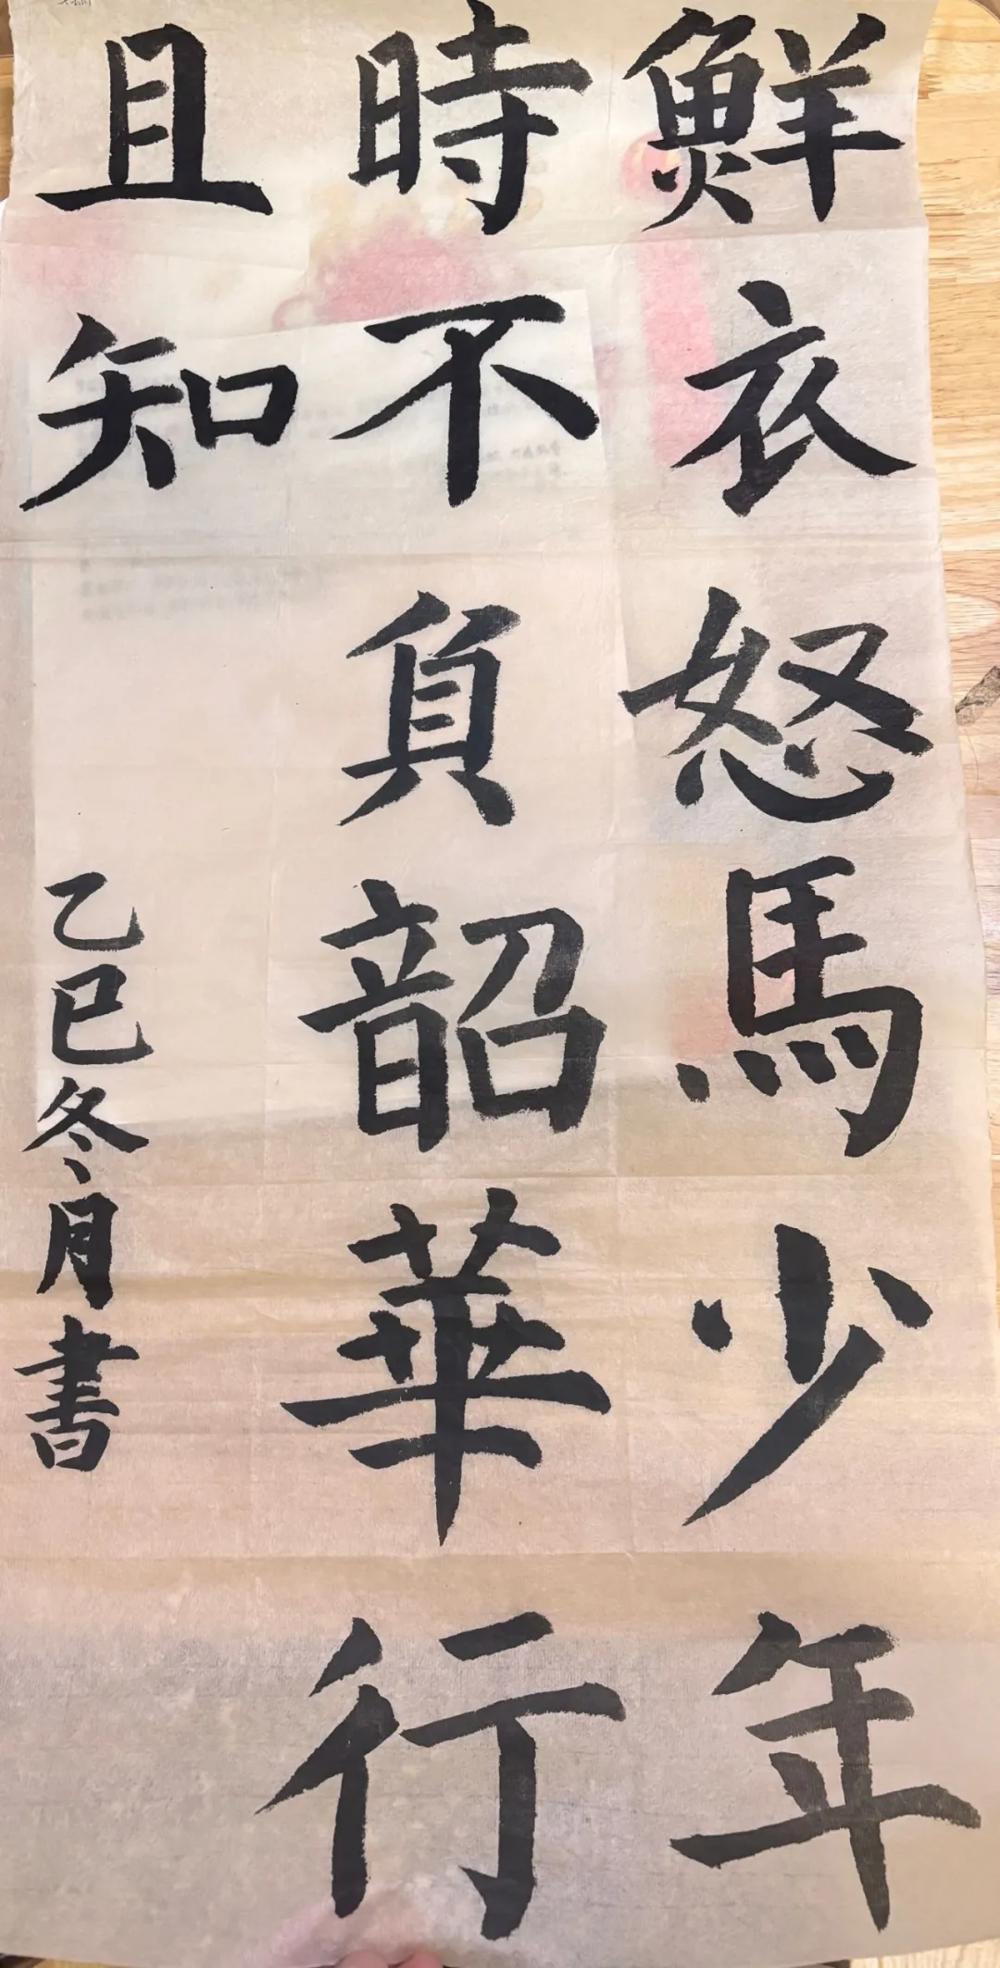 鮮衣怒馬少年
時不負韶華行
且知
乙巳冬月書